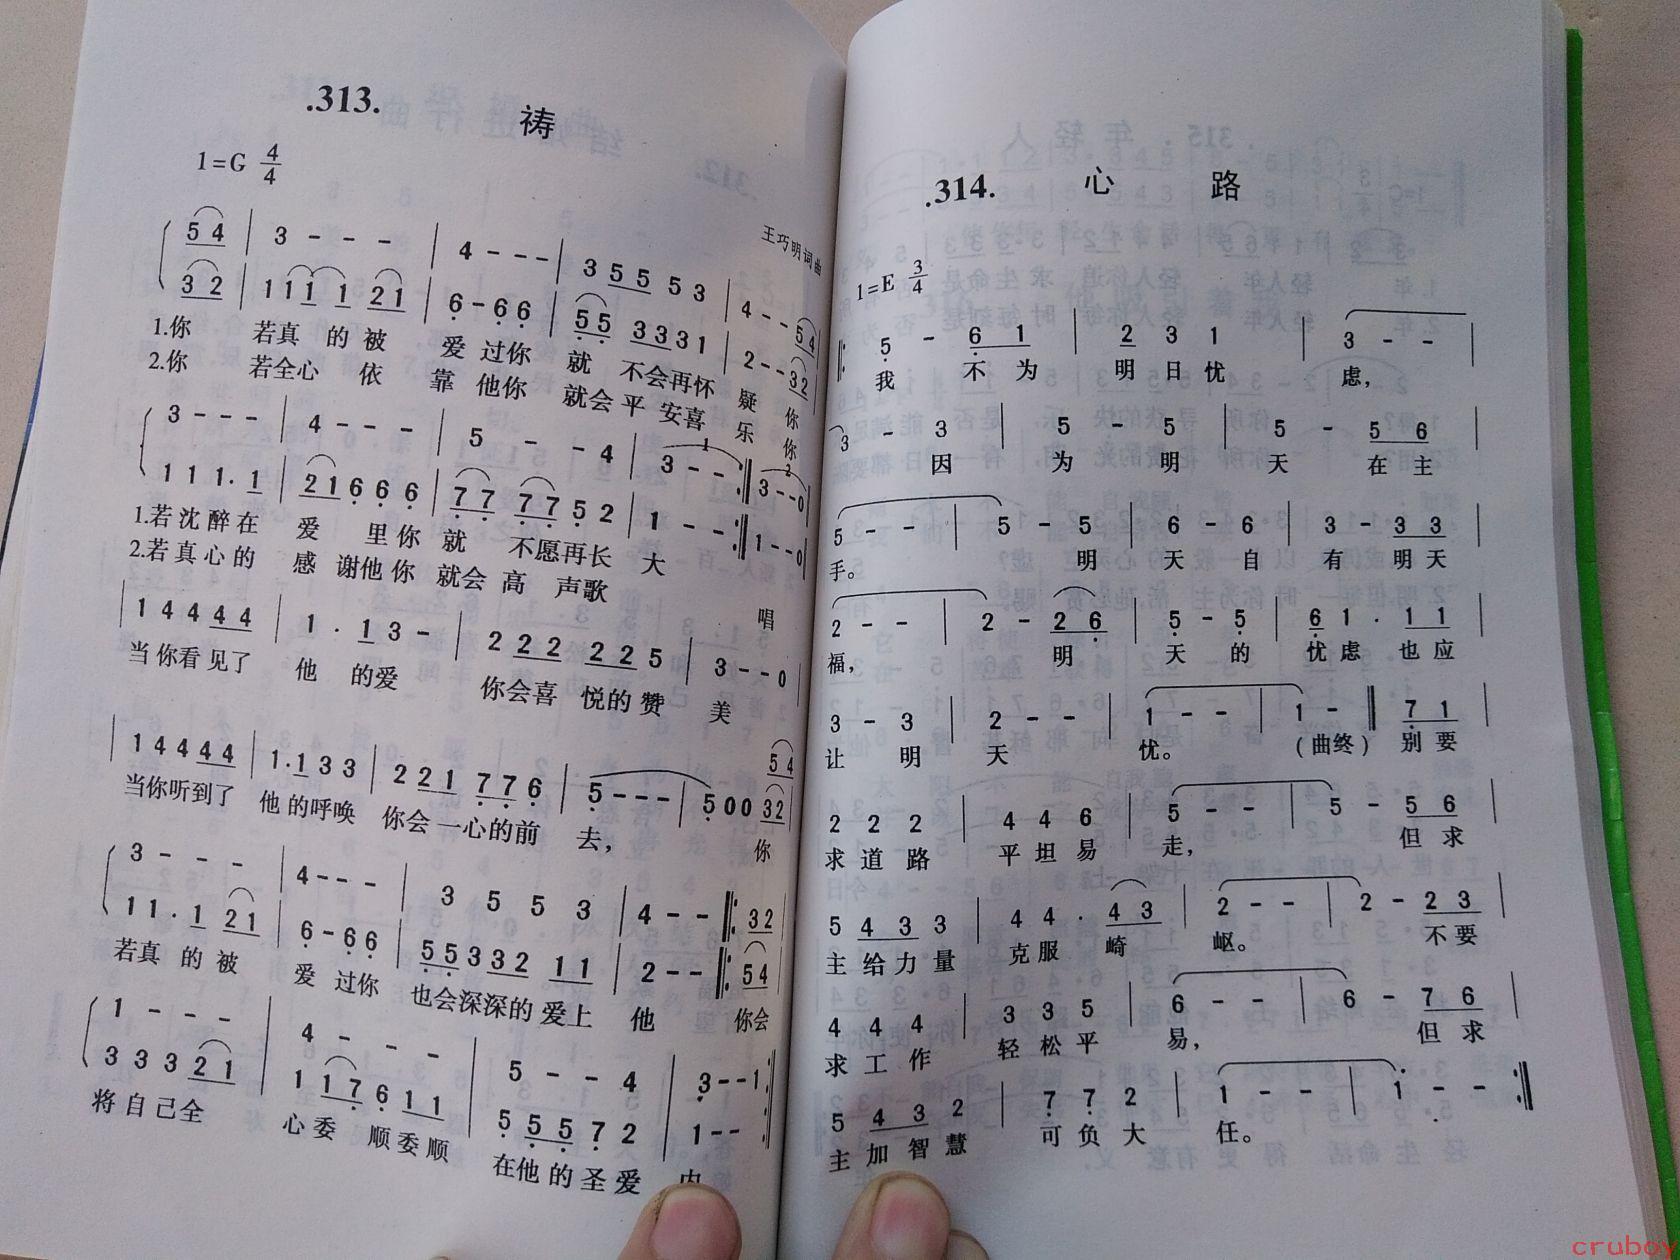 .313. 祷
1=G 4/4
王巧明词曲
5 4 | 3 - - - | 4 - - - | 3 5 5 5 3 | 4 - - 5 4
3 2 | 1 1 1 1 2 1 | 6 - 6 6 | 5 5 3 3 3 1 | 2 - - 3 2
1.你 若真 的 被 爱 过你 就 不会再怀 疑 你
2.你 若全心 依 靠 他你 就会平 安喜 乐 你
3 - - - | 4 - - - | 5 - - 4 | 3 - - :| 3 - - 0
1 1 1 · 1 | 2 1 6 6 6 | 7 7 7 7 5 2 | 1 - - :| 1 - - 0
1.若沈醉在 爱 里你 就 不愿再长 大
2.若真心的 感 谢他你 就会高 声歌 唱
1 4 4 4 4 | 1 · 1 3 - | 2 2 2 2 2 5 | 3 - - 0
当你看见了 他 的爱 你会喜 悦的赞 美
5 4
1 4 4 4 4 | 1 · 1 3 3 | 2 2 1 7 7 6 | 5 - - - | 5 0 0 3 2
当你听到了 他的呼唤 你会一心的前 去, 你
3 - - - | 4 - - - | 3 5 5 3 | 4 - - :| 3 2
1 1 · 1 2 1 | 6 - 6 6 | 5 5 3 3 3 2 1 1 | 2 - - :| 5 4
若真 的 被 爱 过你 也会深深的爱上 他 你会
1 - - - | 4 - - - | 5 - - 4 | 3 - - 1 :|
3 3 3 2 1 | 1 1 7 6 1 1 | 5 5 5 7 2 | 1 - - :|
将自己全 心委 顺委顺 在他的圣爱 内
.314. 心 路
1=E 3/4
|: 5 - 6 1 | 2 3 1 | 3 - - |
我 不为 明日忧 虑,
3 - 3 | 5 - 5 | 5 - 5 6
因 为 明 天 在主
5 - - | 5 - 5 | 6 - 6 | 3 - 3 3 |
手。 明 天 自 有 明天
2 - - | 2 - 2 6 | 5 - 5 | 6 1 · 1 1 |
福, 明 天 的 忧虑 也应
3 - 3 | 2 - - | 1 - - | 1 - ‖ 7 1 |
让 明 天 忧。 (曲终) 别要
2 2 2 | 4 4 6 | 5 - - | 5 - 5 6 |
求道路 平坦易 走, 但求
5 4 3 3 | 4 4 · 4 3 | 2 - - | 2 - 2 3 |
主给力量 克服 崎 岖。 不要
4 4 4 | 3 3 5 | 6 - - | 6 - 7 6 |
求工作 轻松平 易, 但求
5 4 3 2 | 7 7 2 | 1 - - | 1 - - :|
主加智慧 可负大 任。
cruboy